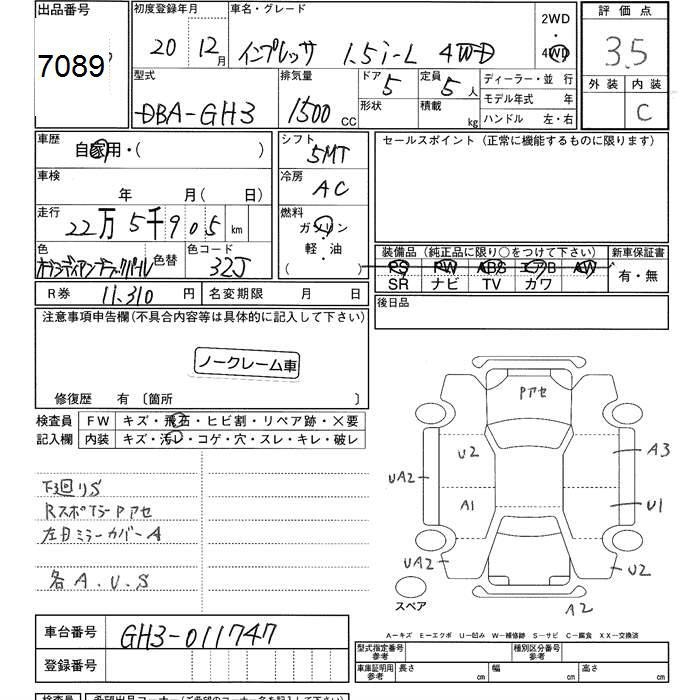 出品番号 初度登録年月 車名・グレード 2WD 評価点
7089 20 12月 インプレッサ 1.5i-L 4WD 4WD 3.5
型式 排気量 ドア 定員 ディーラー・並 行 外装 内装
DBA-GH3 1500 cc 5 5人 モデル年式 年 C
形状 積載 kg ハンドル 左・右
車歴 自家用・( ) シフト 5MT セールスポイント (正常に機能するものに限ります)
車検 年 月( 日) 冷房 AC
走行 22万5千905km 燃料 ガソリン
軽・油
( )
色 オブシディアンブラックパール 色替 色コード 32J
装備品 (純正品に限り○をつけて下さい) 新車保証書
PS PW ABS エアB AW 有・無
SR ナビ TV カワ
R券 11,310 円 名変期限 月 日 後日品
注意事項申告欄(不具合内容等は具体的に記入して下さい)
ノークレーム車
修復歴 有 〔箇所 〕
検査員 FW キズ・飛石・ヒビ割・リペア跡・×要
記入欄 内装 キズ・汚レ・コゲ・穴・スレ・キレ・破レ
下回りS
RスポイラーPアセ
左目ミラーカバーA
各A.U.S
Pアセ
U2 A3
UA2 A1 U1
UA2 U2
スペア A2
車台番号 GH3-011747
登録番号
A-キズ E-エクボ U-凹み W-補修跡 S-サビ C-腐食 XX-交換済
型式指定番号 参考 種別区分番号 参考
車庫証明用 参考 長さ cm 幅 cm 高さ cm
検査員 希望出品コーナー(ご希望のコーナー名を記入下さい)